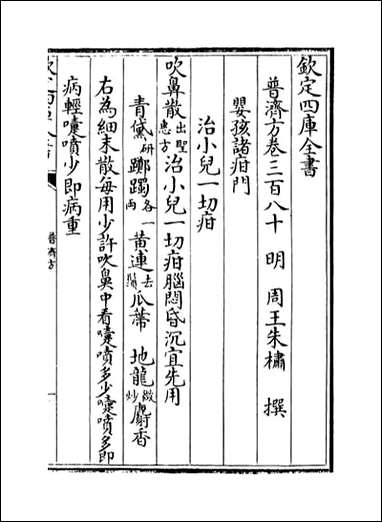 欽定四庫全書
普濟方卷三百八十 明 周王朱橚 撰
嬰孩諸疳門
治小兒一切疳
吹鼻散出聖惠方治小兒一切疳腦悶昏沉宜先用
青黛研 躑躅各一兩 黄連去鬚 瓜蒂 地龍微炒 麝香
右為細末散每用少許吹鼻中看嚏噴多少嚏噴多即
病輕嚏噴少即病重
普濟方